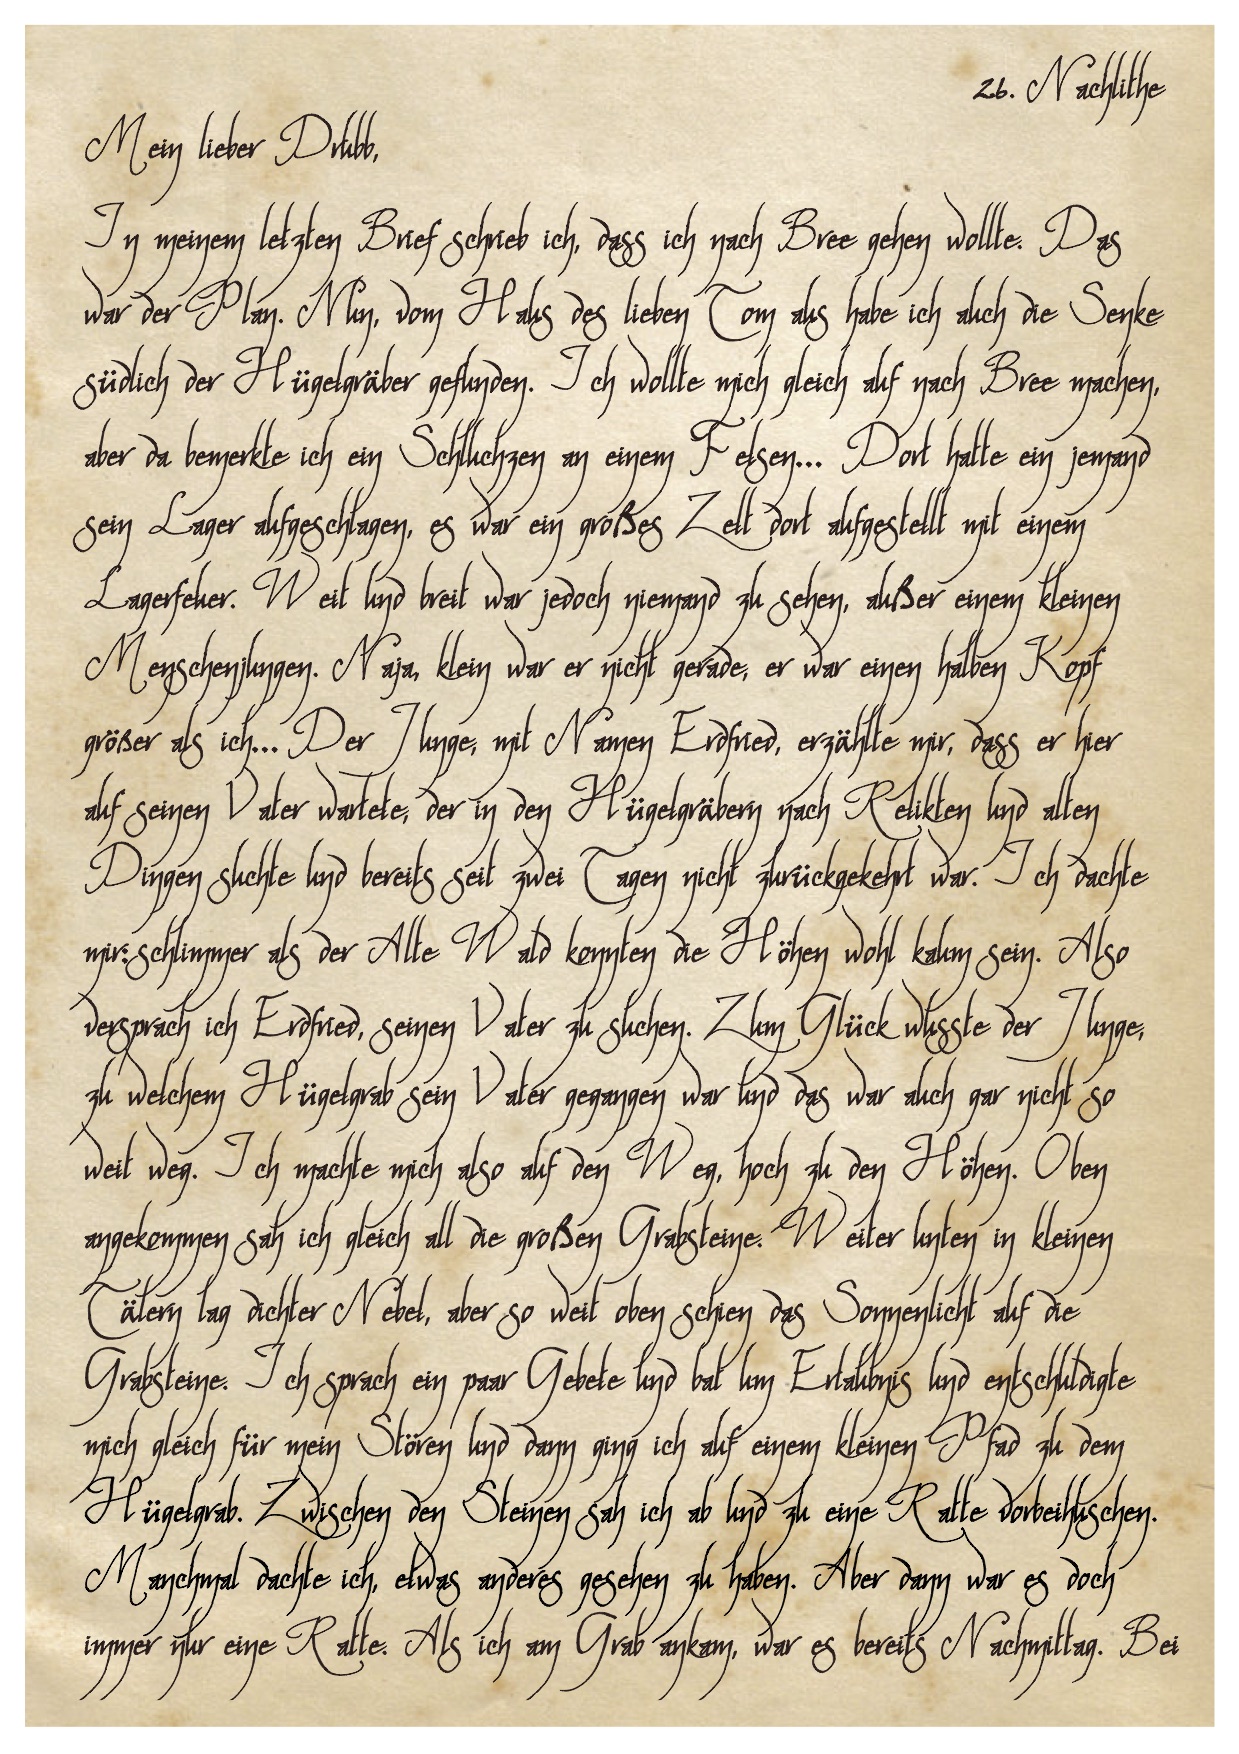 26. Nachlithe
Mein lieber Drubb,
In meinem letzten Brief schrieb ich, dass ich nach Bree gehen wollte. Das
war der Plan. Nun, vom Haus des lieben Tom aus habe ich auch die Senke
südlich der Hügelgräber gefunden. Ich wollte mich gleich auf nach Bree machen,
aber da bemerkte ich ein Schluchzen an einem Felsen... Dort hatte ein jemand
sein Lager aufgeschlagen, es war ein großes Zelt dort aufgestellt mit einem
Lagerfeuer. Weit und breit war jedoch niemand zu sehen, außer einem kleinen
Menschenjungen. Naja, klein war er nicht gerade, er war einen halben Kopf
größer als ich... Der Junge, mit Namen Erdfried, erzählte mir, dass er hier
auf seinen Vater wartete, der in den Hügelgräbern nach Relikten und alten
Dingen suchte und bereits seit zwei Tagen nicht zurückgekehrt war. Ich dachte
mir:schlimmer als der Alte Wald konnten die Höhen wohl kaum sein. Also
versprach ich Erdfried, seinen Vater zu suchen. Zum Glück wusste der Junge,
zu welchem Hügelgrab sein Vater gegangen war und das war auch gar nicht so
weit weg. Ich machte mich also auf den Weg, hoch zu den Höhen. Oben
angekommen sah ich gleich all die großen Grabsteine. Weiter unten in kleinen
Tälern lag dichter Nebel, aber so weit oben schien das Sonnenlicht auf die
Grabsteine. Ich sprach ein paar Gebete und bat um Erlaubnis und entschuldigte
mich gleich für mein Stören und dann ging ich auf einem kleinen Pfad zu dem
Hügelgrab. Zwischen den Steinen sah ich ab und zu eine Ratte vorbeihuschen.
Manchmal dachte ich, etwas anderes gesehen zu haben. Aber dann war es doch
immer nur eine Ratte. Als ich am Grab ankam, war es bereits Nachmittag. Bei